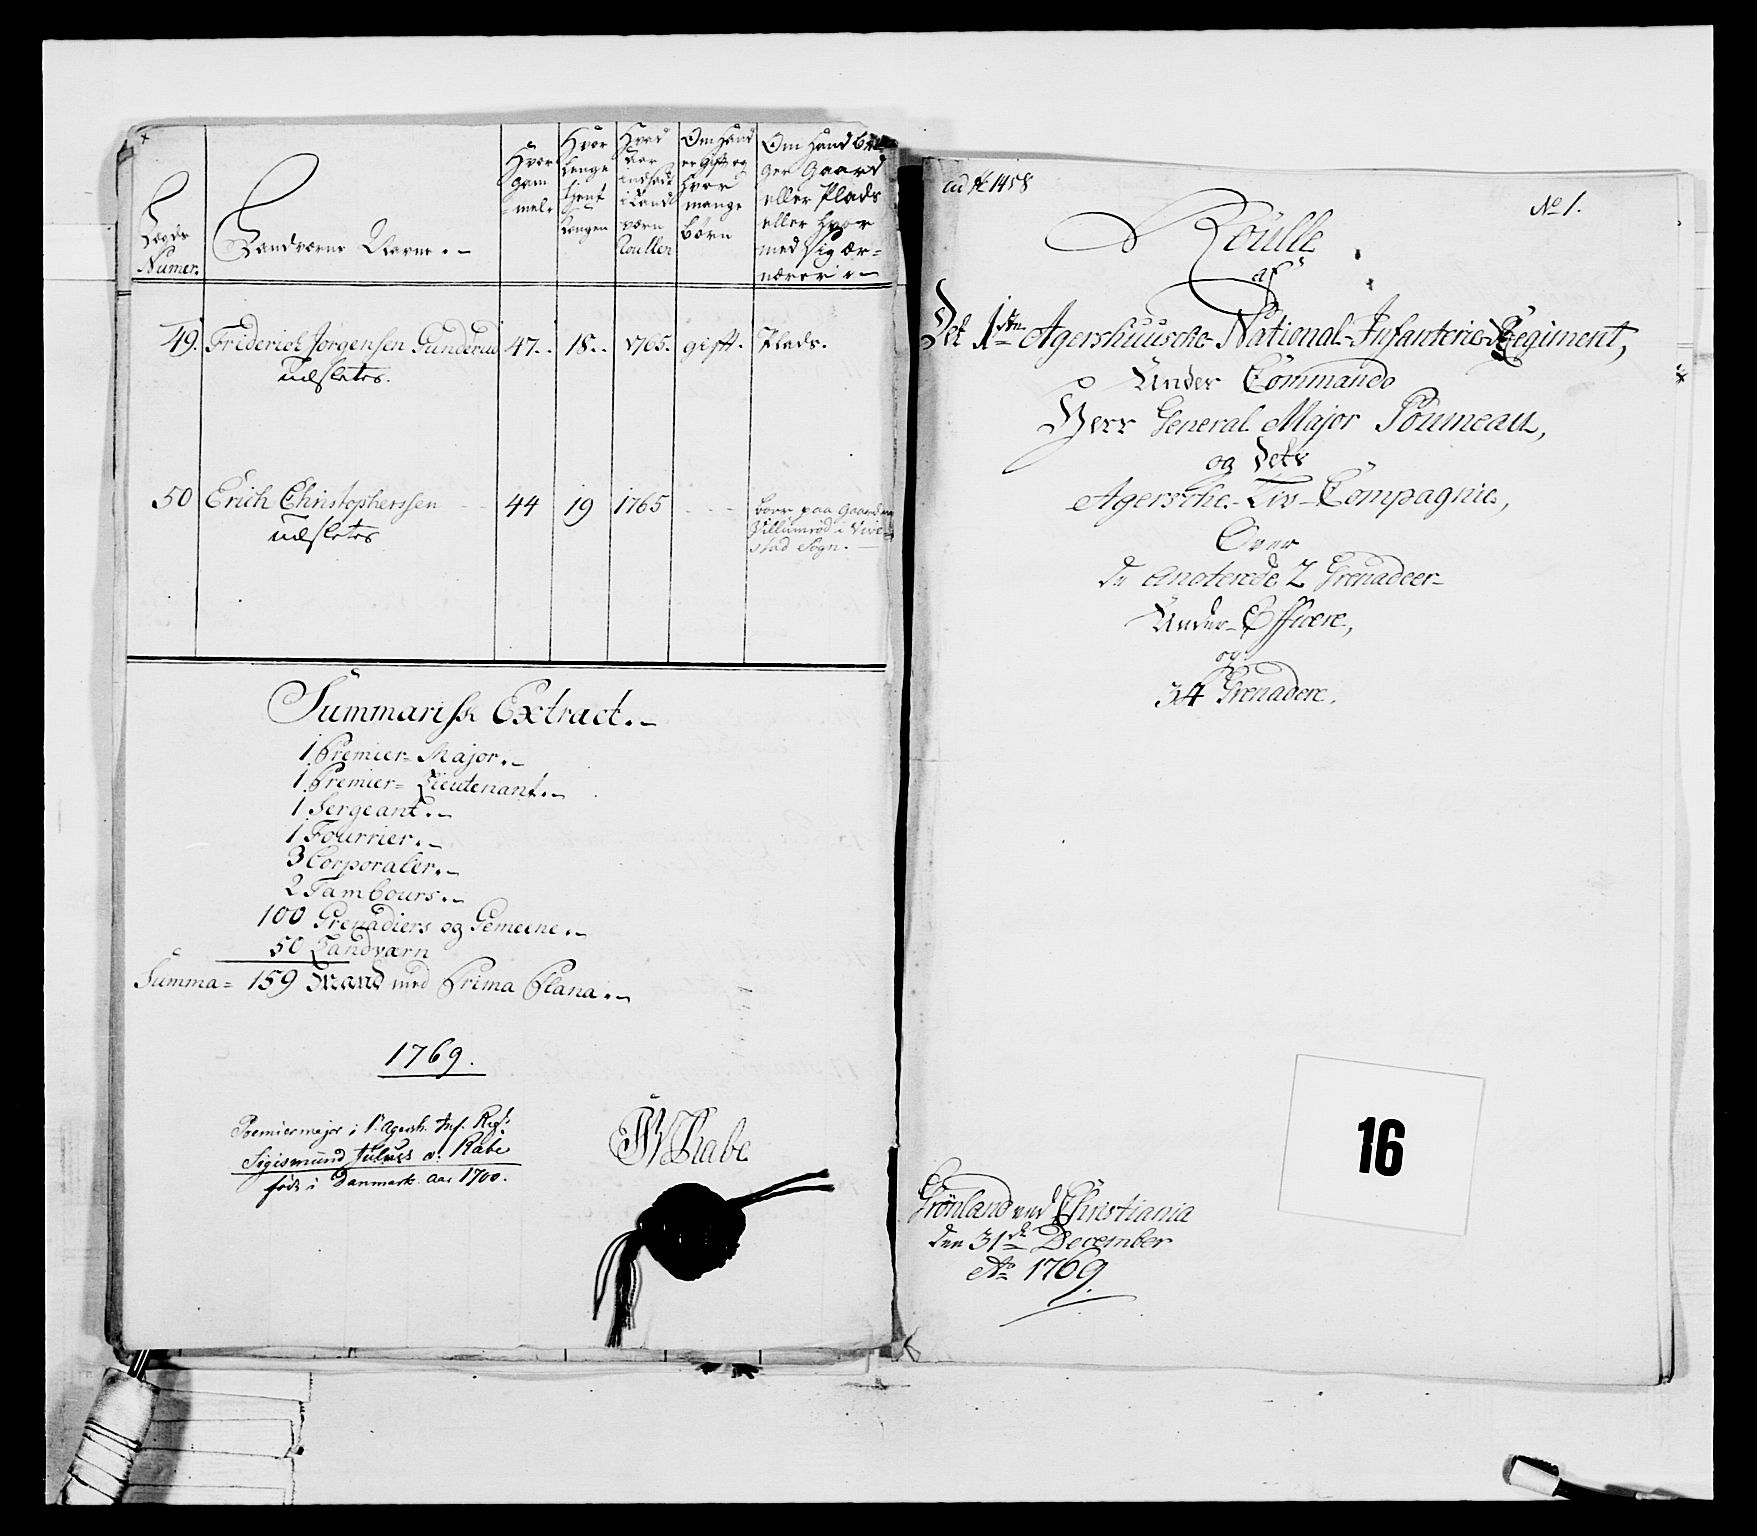 Lægds
Numer.
Landværns Navne.
Hvor
gam
mel.
Hvor
lenge
tient
Kongen
Hvad
Aar
indsadt
i Land
værn
Roullen
Om Hand
er gift og
hvor
mange
børn
Om Hand bru
ger Gaard
eller Plads
eller hvor
med sig ær-
nærer
49. Friderich Jørgensen Gunderud 47. 18. 1765. gift. Plads.
udslettes.
50 Erich Christophersen 44 19 1765 boer paa Gaarden
Villumrød i Vive-
stad Sogn.
udslettes
Summarisk Extract.
1 Premier-Major.
1 Premier-Lieutenant.
1 Sergeant.
1 Fourrier.
3 Corporaler.
2 Tambours.
100 Grenadiers og Gemeene.
50 Landværn
Summa= 159 Mand med Prima Plana.
1769.
Premiermajor i 1. Agersh. Inf. Reg:
Sigismund Julius v: Rabe
født i Danmark Aar 1700.
Rabe
16
ad № 1458
No 1.
Roulle
af
Det 1ste Agershuusche National-Infanterie-Regiment,
Under Commando
Herr General Major Poumeau,
og dets
Agersche-Liv-Compagnie,
Over
de anoterede 2 Grenadeer-
Under-Officere,
og
34 Grenadere.
Grønland ved Christiania
den 31de December
Ao 1769.